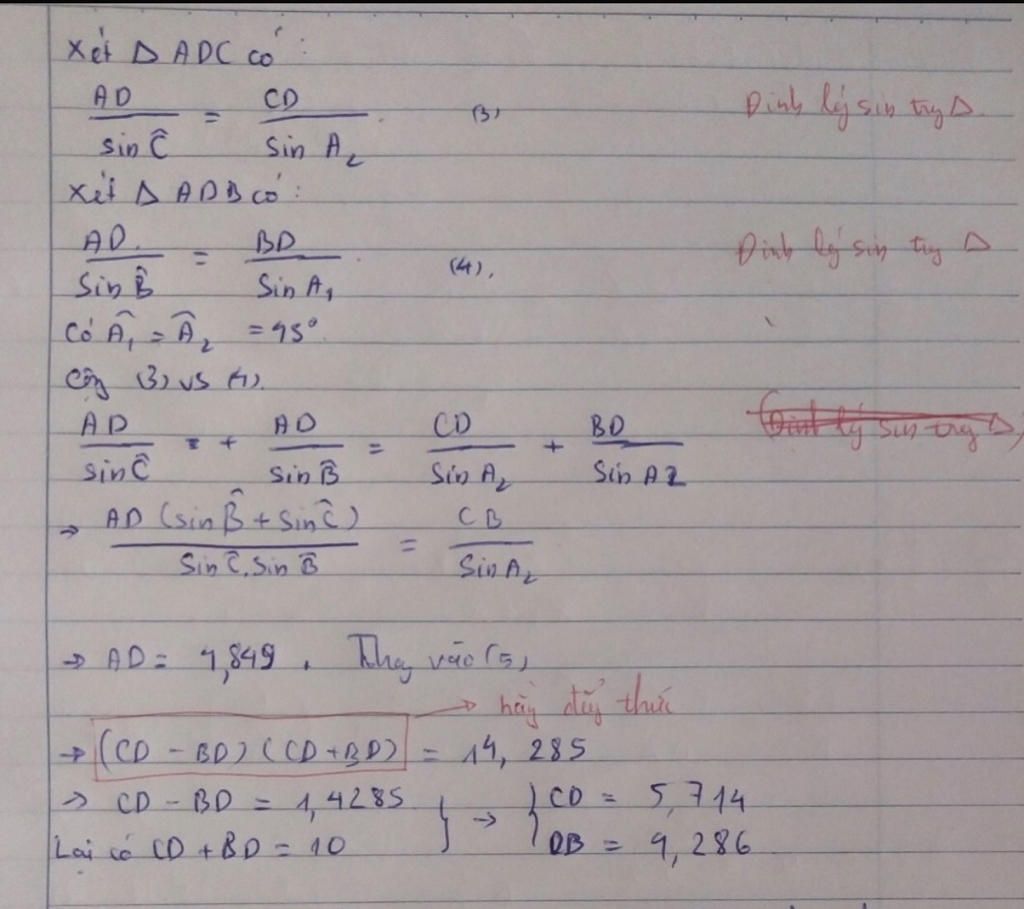 Xét Δ ADC có :
AD / sin Ĉ = CD / Sin A₂ (3) Định lý sin trg Δ
Xét Δ ADB có :
AD / Sin B̂ = BD / Sin A₁ (4). Định lý sin trg Δ
Có Â₁ = Â₂ = 45°
Cộg (3) vs (4).
AD / sin Ĉ + AD / sin B̂ = CD / Sin A₂ + BD / Sin A2 (Định lý sin trg Δ)
→ AD (sin B̂ + sin Ĉ) / Sin Ĉ. Sin B̂ = CB / Sin A₂
→ AD = 4,849 . Thay vào (5)
→ hằg đẳg thức
→ (CD - BD) (CD + BD) = 14, 285
→ CD - BD = 1,4285 } → { CD = 5,714
Lại có CD + BD = 10 DB = 4,286